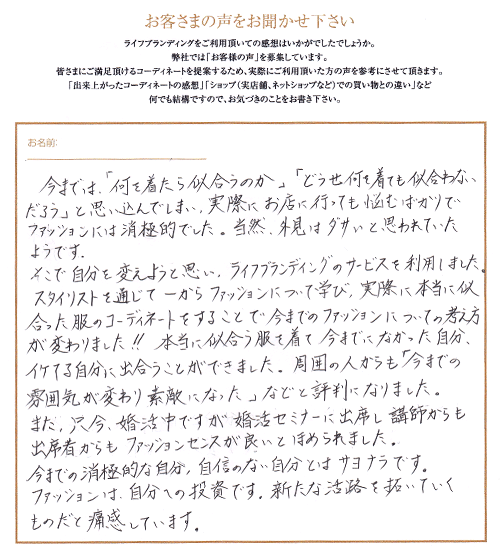 お客さまの声をお聞かせ下さい
ライフブランディングをご利用頂いての感想はいかがでしたでしょうか。
弊社では「お客様の声」を募集しています。
皆さまにご満足頂けるコーディネートを提案するため、実際にご利用頂いた方の声を参考にさせて頂きます。
「出来上がったコーディネートの感想」「ショップ（実店舗、ネットショップなど）での買い物との違い」など
何でも結構ですので、お気づきのことをお書き下さい。
お名前：
今までは、「何を着たら似合うのか」「どうせ何を着ても似合わない
だろう」と思い込んでしまい、実際にお店に行っても悩むばかりで
ファッションには消極的でした。当然、外見はダサいと思われていた
ようです。
そこで自分を変えようと思い、ライフブランディングのサービスを利用しました。
スタイリストを通じて一からファッションについて学び、実際に本当に似
合った服のコーディネートをすることで今までのファッションについての考え方
が変わりました!! 本当に似合う服を着て今までになかった自分、
イケてる自分に出合うことができました。周囲の人からも「今までの
雰囲気が変わり素敵になった」などと評判になりました。
また、只今、婚活中ですが婚活セミナーに出席し講師からも
出席者からもファッションセンスが良いとほめられました。
今までの消極的な自分、自信のない自分とはサヨナラです。
ファッションは、自分への投資です。新たな活路を拓いていく
ものだと痛感しています。